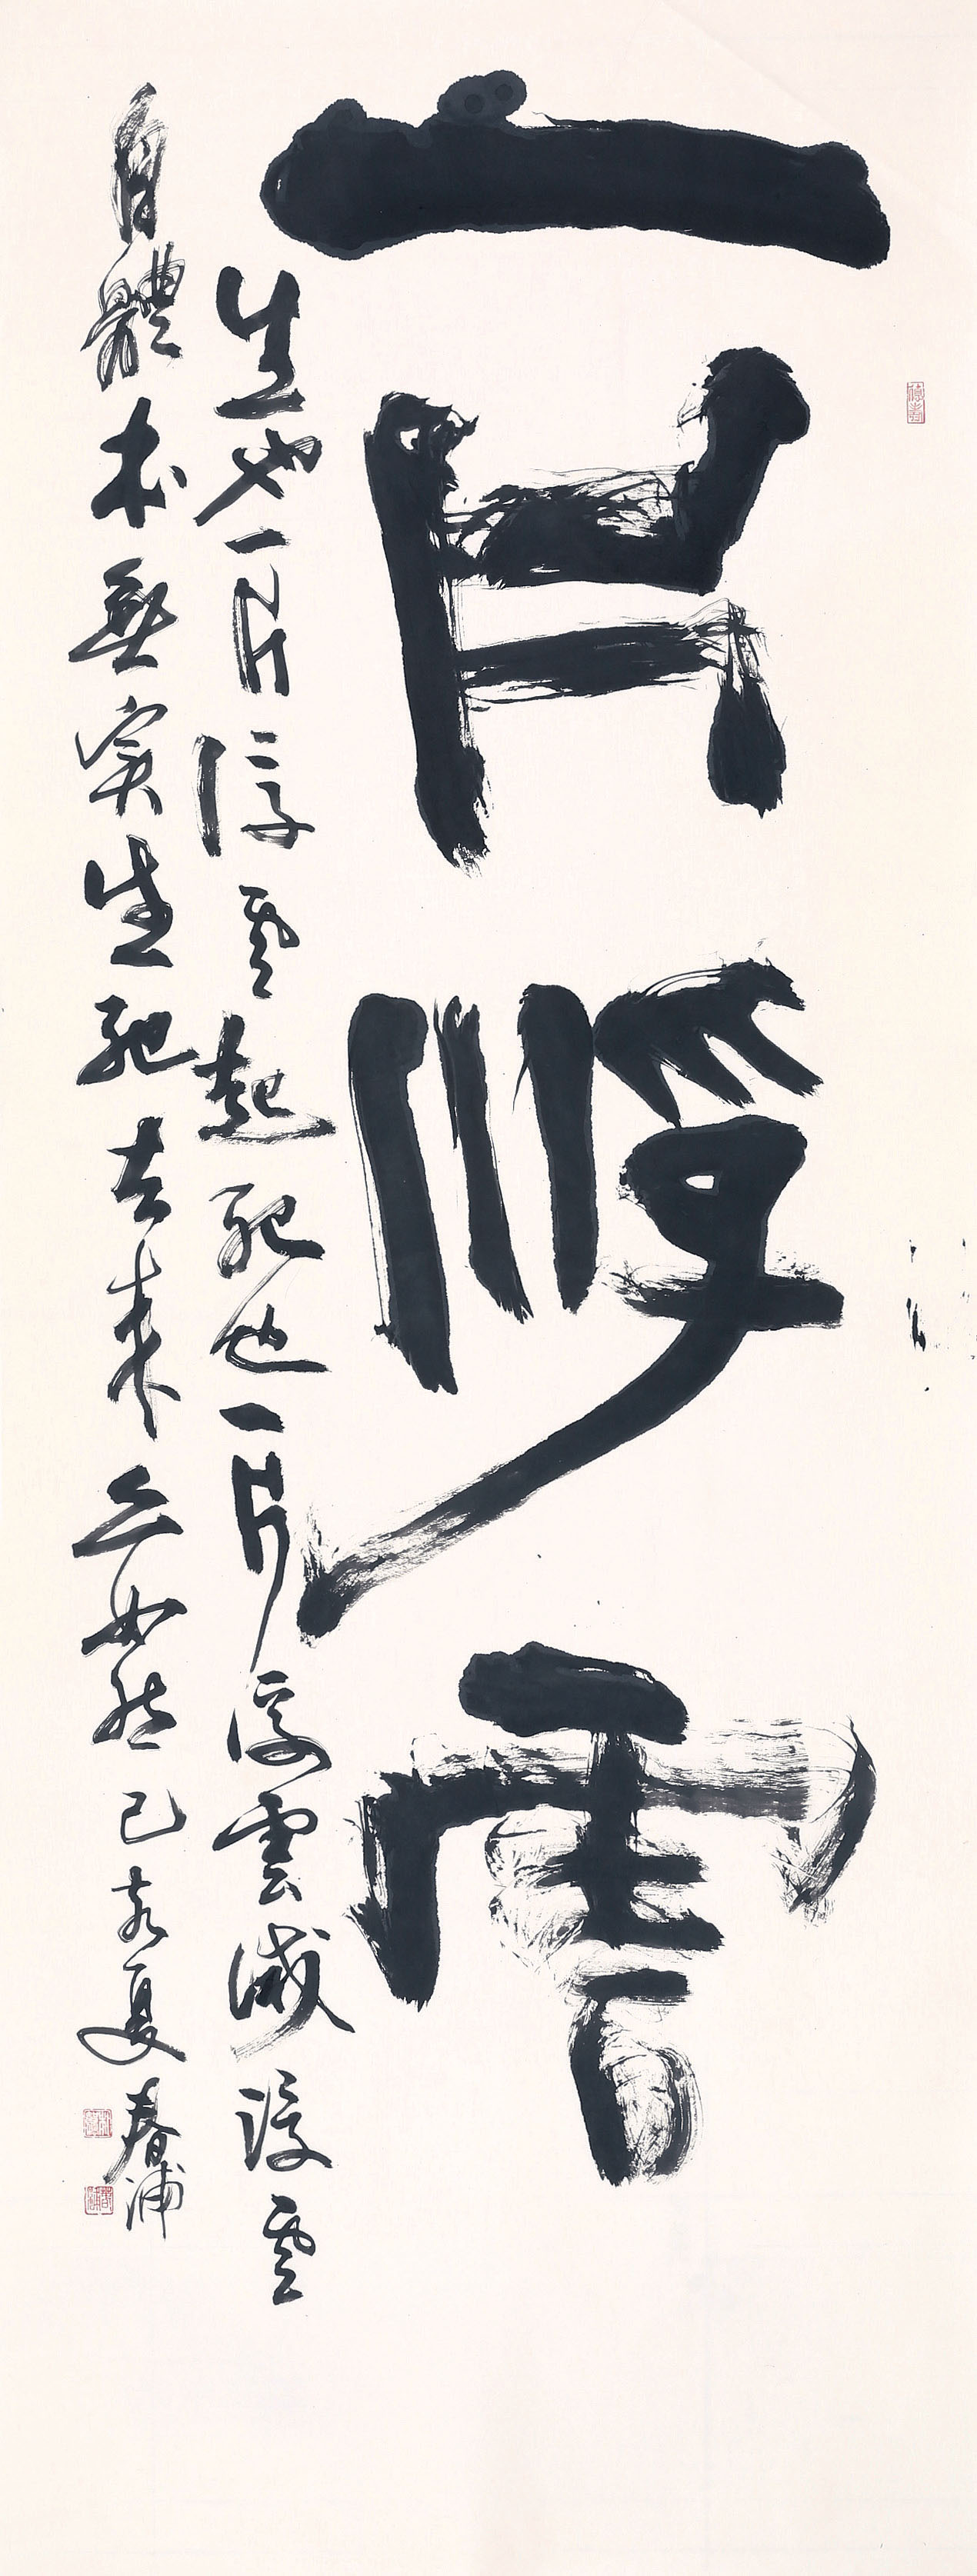 一片浮雲
生也一片浮雲起死也一片浮雲滅浮雲
自體本無實生死去來亦如然己亥夏春浦